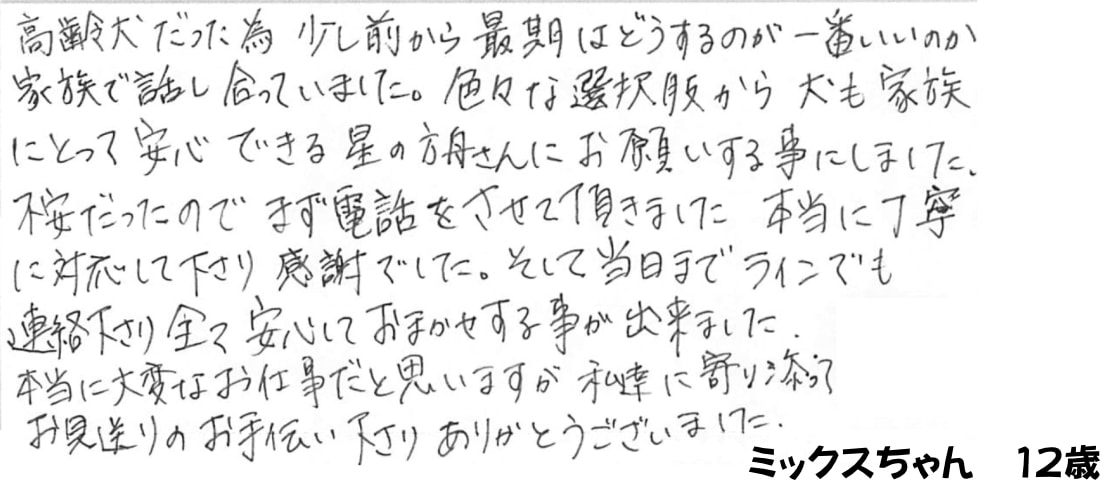 高齢犬だった為 少し前から最期はどうするのが一番いいのか
家族で話し合っていました。色々な選択肢から犬も家族
にとって安心できる星の方舟さんにお願いする事にしました。
不安だったのでまず電話をさせて頂きました 本当に丁寧
に対応して下さり感謝でした。そして当日までラインでも
連絡下さり全て安心しておまかせする事が出来ました。
本当に大変なお仕事だと思いますが私達に寄り添って
お見送りのお手伝い下さりありがとうございました。
ミックスちゃん 12歳